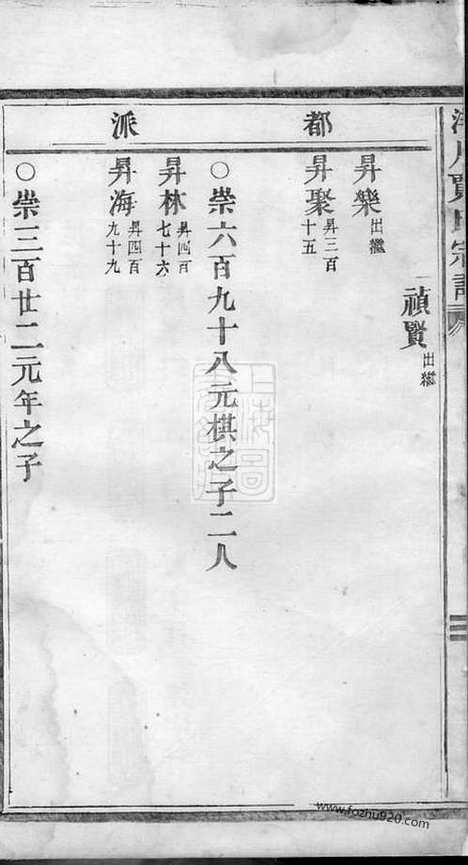 都
派
禎賢出繼
昇樂出繼
昇聚昇三百十五
○崇六百九十八元棋之子二人
昇林昇四百七十六
昇海昇四百九十九
○崇三百廿二元年之子
www.fozhu920.com